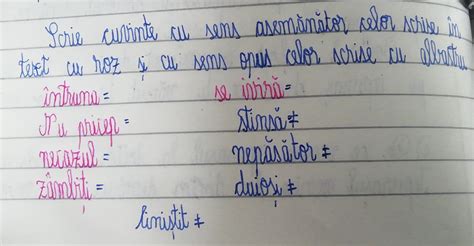 Scrie cuvinte cu sens asemănător celor scrise în
text cu roz și cu sens opus celor scrise cu albastru
întruna = se ivină=
Nu pricep = stinsă ≠
necazul = nepăsător ≠
zâmbiți = duioși ≠
liniștit ≠